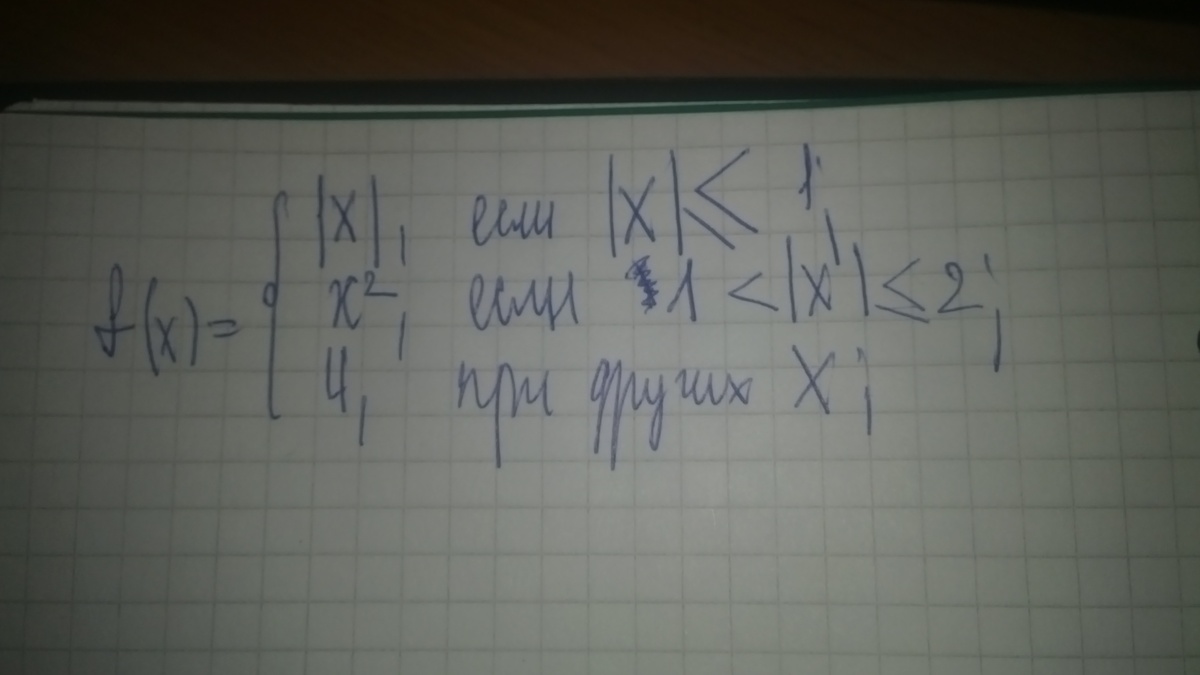 |x|, если |x| ≤ 1;
f(x) = x², если 1 < |x| ≤ 2;
4, при других x;